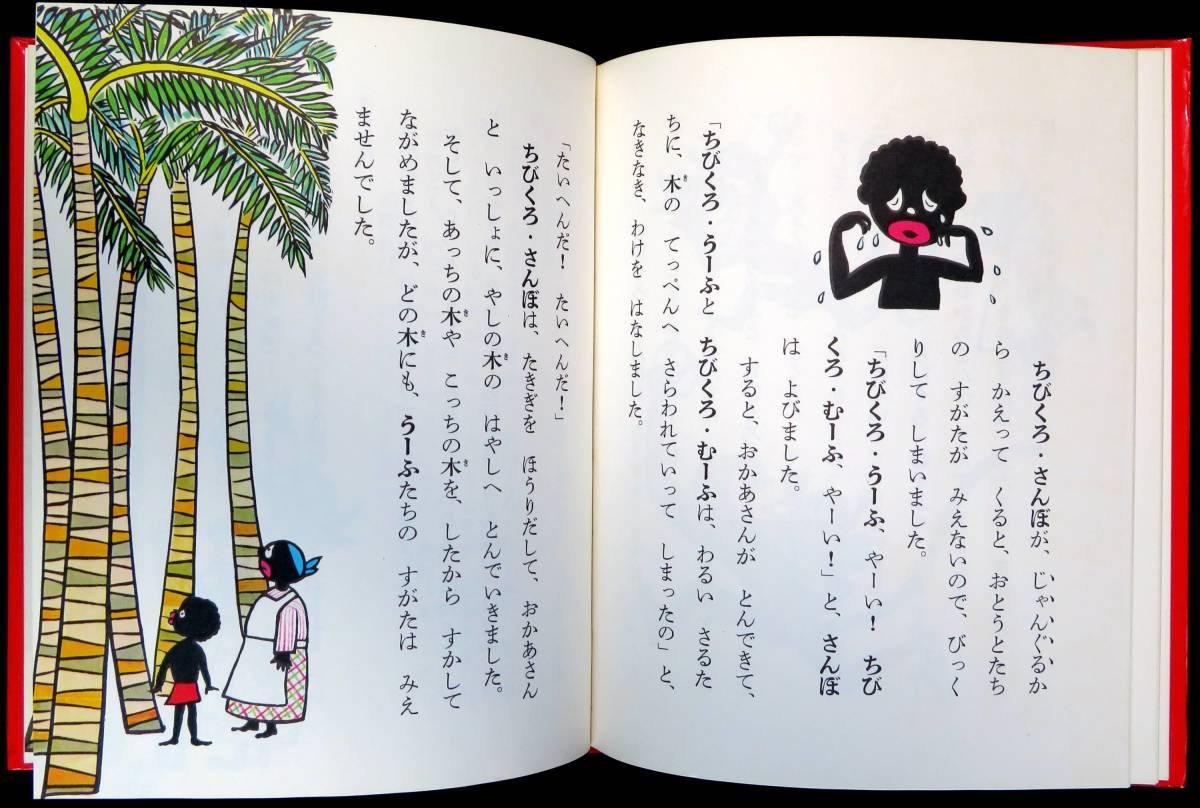 ちびくろ・さんぼが、じゃんぐるか
ら かえって くると、おとうとたち
の すがたが みえないので、びっく
りして しまいました。
「ちびくろ・うーふ、やーい！ ちび
くろ・むーふ、やーい！」と、さんぼ
は よびました。
すると、おかあさんが とんできて、
「ちびくろ・うーふと ちびくろ・むーふは、わるい さるた
ちに、木の てっぺんへ さらわれていって しまったの」と、
なきなき、わけを はなしました。
「たいへんだ！ たいへんだ！」
ちびくろ・さんぼは、たきぎを ほうりだして、おかあさん
と いっしょに、やしの木の はやしへ とんでいきました。
そして、あっちの木や こっちの木を、したから すかして
ながめましたが、どの木にも、うーふたちの すがたは みえ
ませんでした。